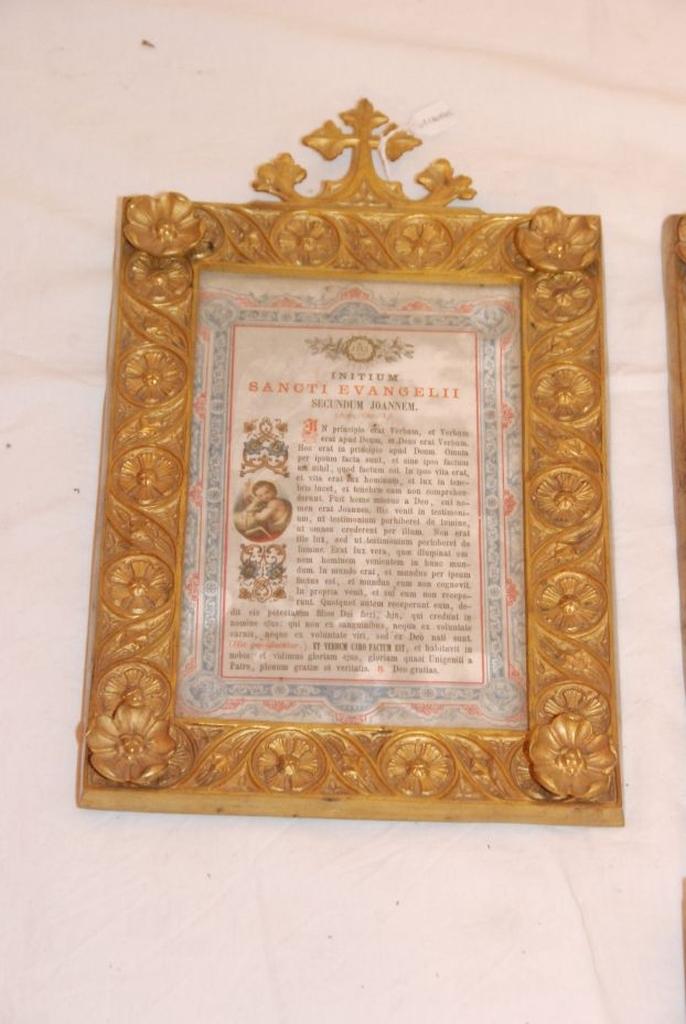 INITIUM
SANCTI EVANGELII
SECUNDUM JOANNEM.
IN principio erat Verbum, et Verbum
erat apud Deum, et Deus erat Verbum.
Hoc erat in principio apud Deum. Omnia
per ipsum facta sunt, et sine ipso factum
est nihil, quod factum est. In ipso vita erat,
et vita erat lux hominum, et lux in tene-
bris lucet, et tenebræ eam non comprehen-
derunt. Fuit homo missus a Deo, cui no-
men erat Joannes. Hic venit in testimoni-
um, ut testimonium perhiberet de lumine,
ut omnes crederent per illum. Non erat
ille lux, sed ut testimonium perhiberet de
lumine. Erat lux vera, quæ illuminat om-
nem hominem venientem in hunc mun-
dum. In mundo erat, et mundus per ipsum
factus est, et mundus eum non cognovit.
In propria venit, et sui eum non recepe-
runt. Quotquot autem receperunt eum, de-
dit eis potestatem filios Dei fieri, his, qui credunt in
nomine ejus: qui non ex sanguinibus, neque ex voluntate
carnis, neque ex voluntate viri, sed ex Deo nati sunt.
(Hic genuflectitur.) ET VERBUM CARO FACTUM EST, et habitavit in
nobis: et vidimus gloriam ejus, gloriam quasi Unigeniti a
Patre, plenum gratiæ et veritatis. ℟. Deo gratias.